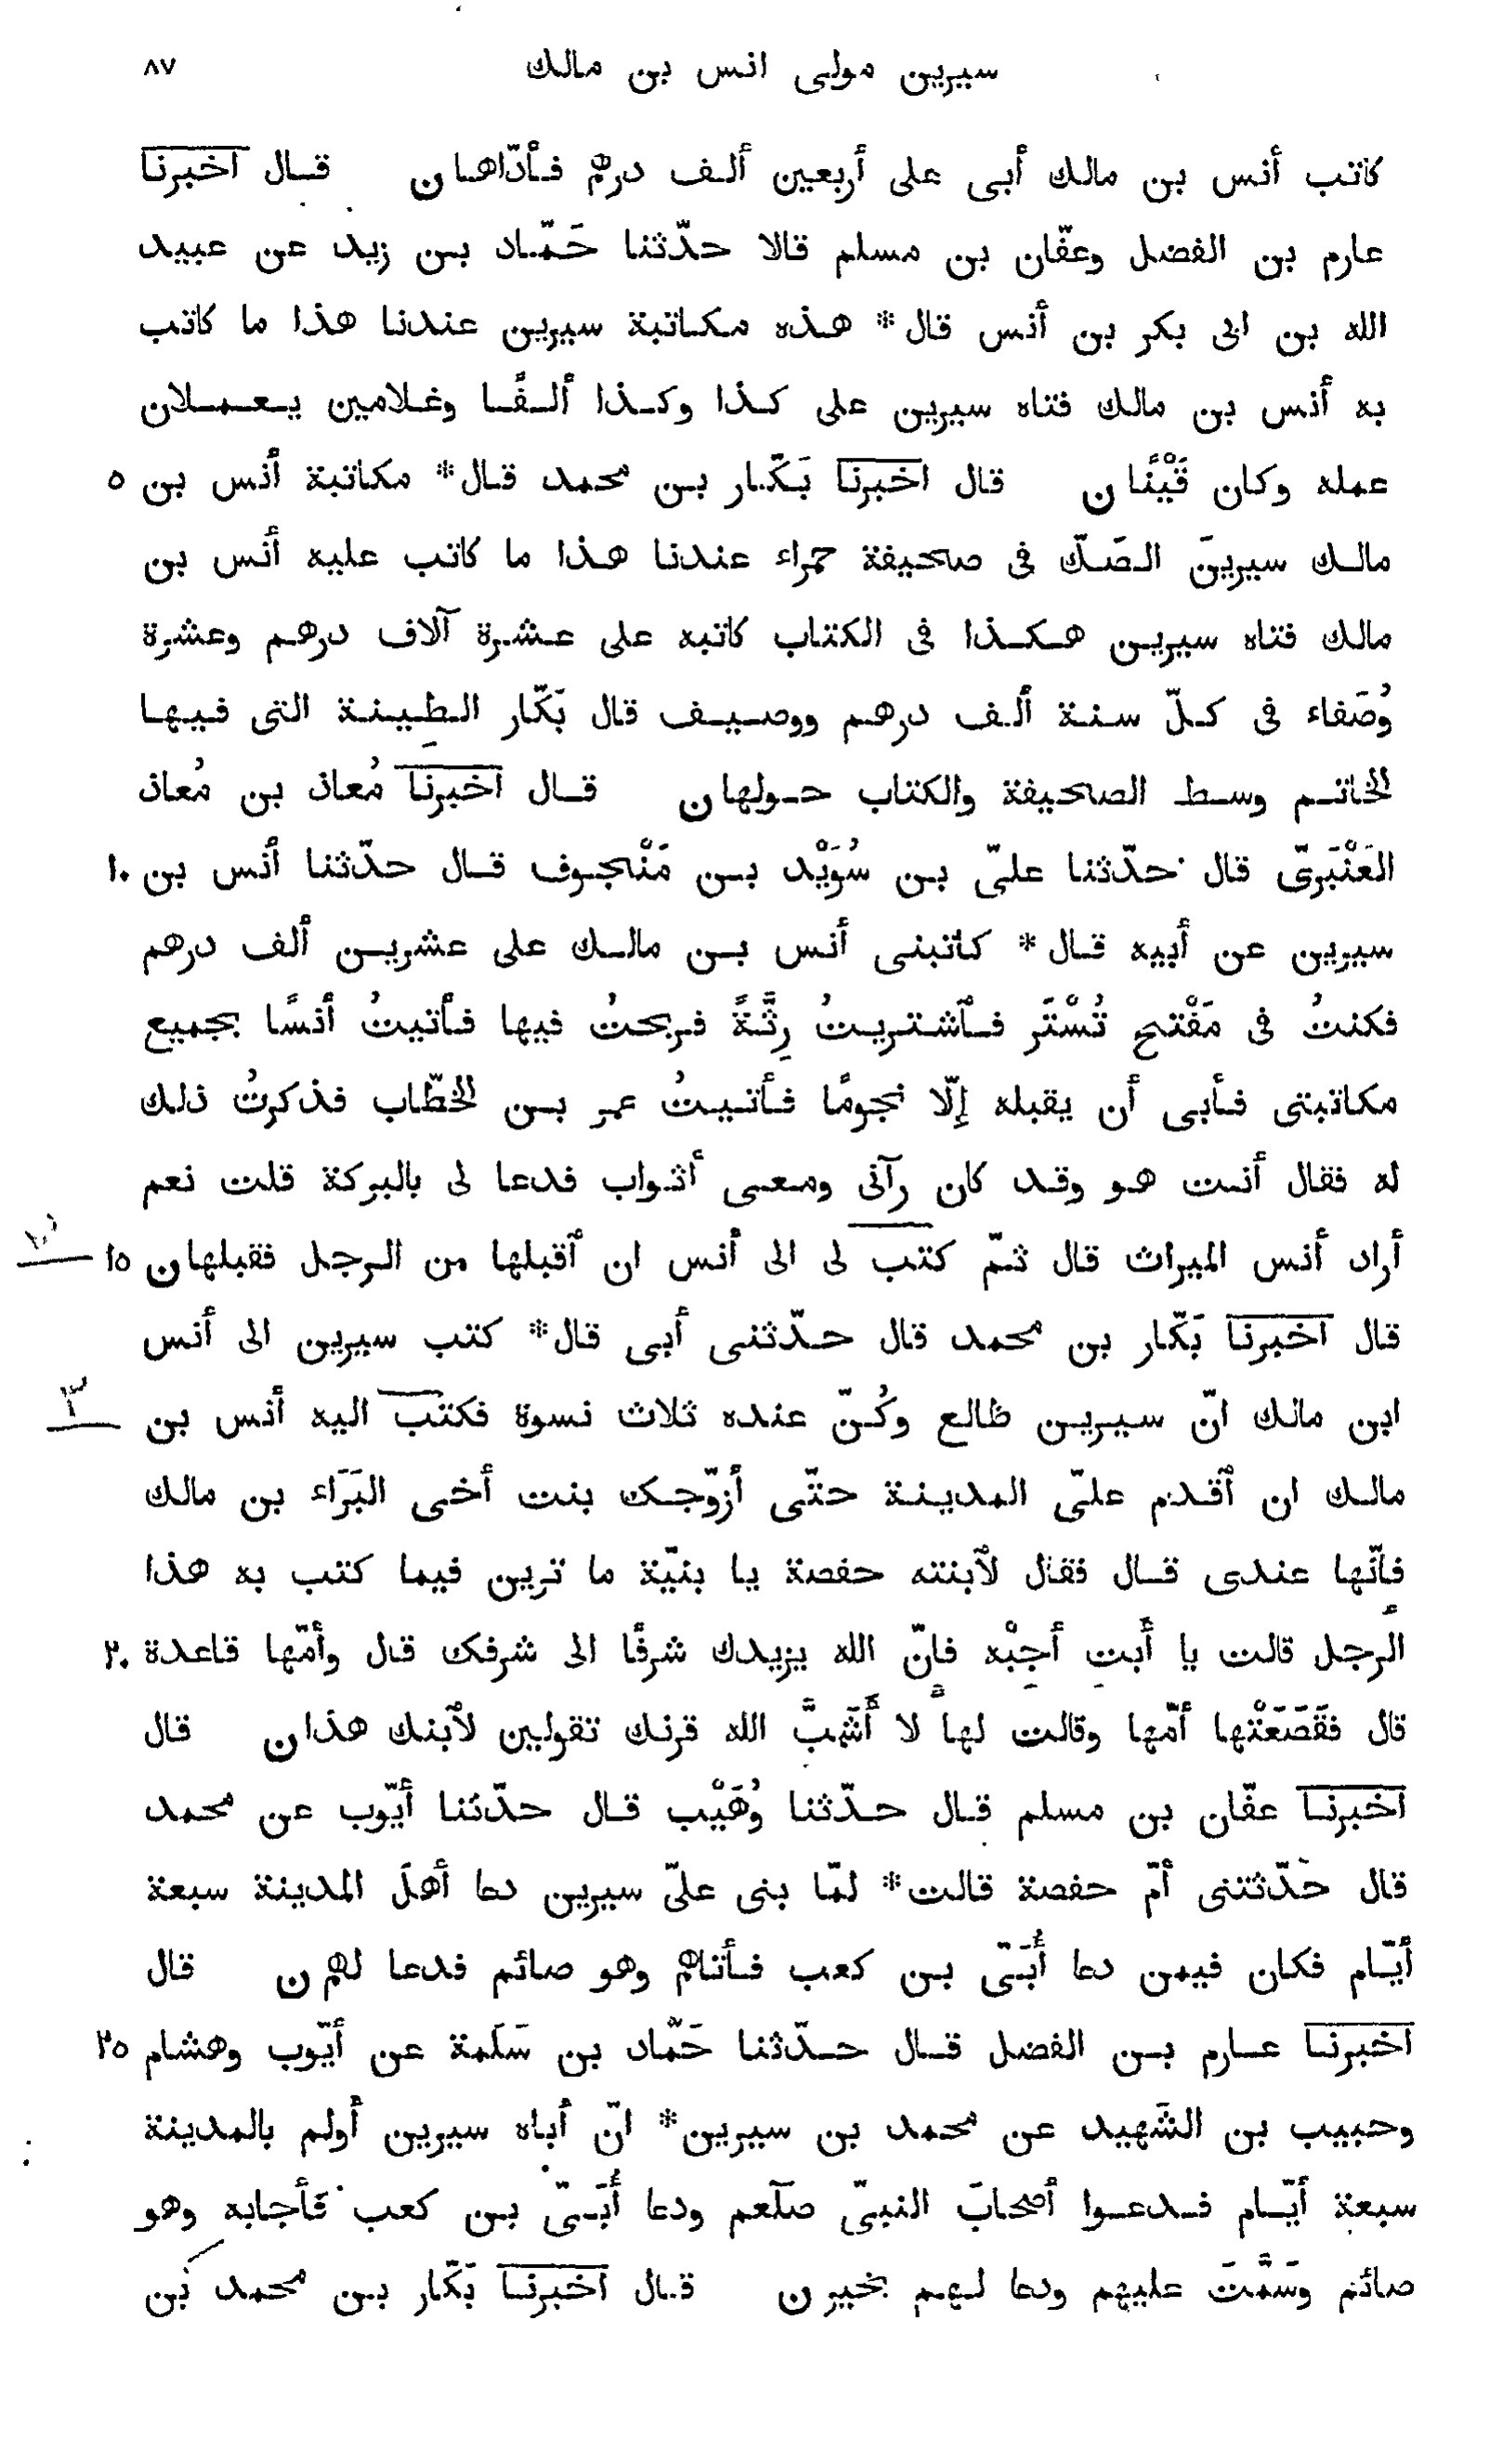 سيرين مولى انس بن مالك ٨٧
كاتب أنس بن مالك أبى على أربعين ألف درهم فأدّاها ن قال اخبرنا
عارم بن الفضل وعفّان بن مسلم قالا حدّثنا حَمّاد بن زيد عن عبيد
الله بن ابى بكر بن أنس قال* هذه مكاتبة سيرين عندنا هذا ما كاتب
به أنس بن مالك فتاه سيرين على كذا وكذا ألفًا وغلامين يعملان
عمله وكان قَيْنًا ن قال اخبرنا بَكّار بن محمد قال* مكاتبة أنس بن ٥
مالك سيرينَ الصَكّ فى صحيفة حمراء عندنا هذا ما كاتب عليه أنس بن
مالك فتاه سيرين هكذا فى الكتاب كاتبه على عشرة آلاف درهم وعشرة
وُصَفاء فى كلّ سنة ألف درهم ووصيف قال بَكّار الطِينة التى فيها
الخاتم وسط الصحيفة والكتاب حولها ن قال اخبرنا مُعاذ بن مُعاذ
العَنْبَرىّ قال حدّثنا علىّ بن سُوَيْد بن مَنْجوف قال حدّثنا أنس بن ١٠
سيرين عن أبيه قال* كاتبنى أنس بن مالك على عشرين ألف درهم
فكنتُ فى مَفْتح تُسْتَر فٱشتريتُ رِثّةً فربحتُ فيها فأتيتُ أنسًا بجميع
مكاتبتى فأبى أن يقبله إلّا نجومًا فأتيتُ عمر بن الخطّاب فذكرتُ ذلك
له فقال أنت هو وقد كان رآنى ومعى أثواب فدعا لى بالبركة قلت نعم
أراد أنس الميراث قال ثمّ كتب لى الى أنس ان ٱقبلها من الرجل فقبلها ن ١٥
قال اخبرنا بَكّار بن محمد قال حدّثنى أبى قال* كتب سيرين الى أنس
ابن مالك انّ سيرين ظالع وكُنّ عنده ثلاث نسوة فكتب اليه أنس بن
مالك ان ٱقدم علىّ المدينة حتّى أزوّجك بنت أخى البَرَاء بن مالك
فانّها عندى قال فقال لٱبنته حفصة يا بنيّة ما ترين فيما كتب به هذا
الرجل قالت يا أَبتِ أجِبْه فإنّ الله يزيدك شرفًا الى شرفك قال وأمّها قاعدة ٢٠
قال فقَصَعَتْها أمّها وقالت لها لا أَشَبَّ الله قرنك تقولين لٱبنك هذا ن قال
اخبرنا عفّان بن مسلم قال حدّثنا وُهَيْب قال حدّثنا أيّوب عن محمد
قال حَدّثتنى أمّ حفصة قالت* لمّا بنى علىّ سيرين دعا أهلَ المدينة سبعة
أيّام فكان فيمن دعا أُبَىّ بن كعب فأتاهم وهو صائم فدعا لهم ن قال
اخبرنا عارم بن الفضل قال حدّثنا حَمّاد بن سَلَمة عن أيّوب وهشام ٢٥
وحبيب بن الشَهيد عن محمد بن سيرين* انّ أباه سيرين أولم بالمدينة
سبعة أيّام فدعوا أصحابَ النبىّ صلّعم ودعا أُبَىّ بن كعب فأجابه وهو
صائم وسَمَّتَ عليهم ودعا لهم بخير ن قال اخبرنا بَكّار بن محمد بن